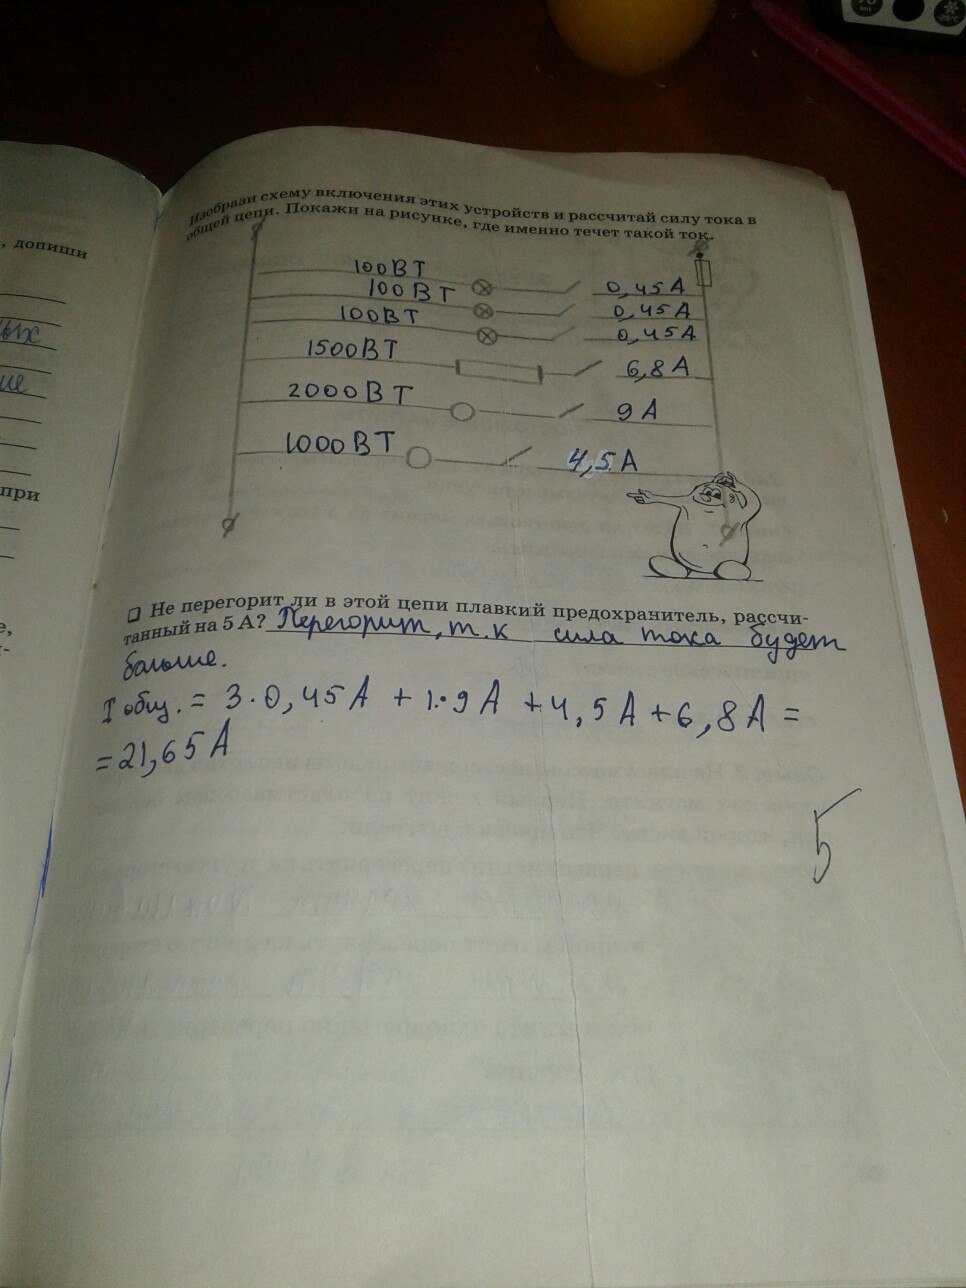 Изобрази схему включения этих устройств и рассчитай силу тока в
общей цепи. Покажи на рисунке, где именно течет такой ток.
100ВТ 0,45А
100ВТ 0,45А
100ВТ 0,45А
1500ВТ 6,8А
2000ВТ 9А
1000ВТ 4,5А
Не перегорит ли в этой цепи плавкий предохранитель, рассчи-
танный на 5 А? Перегорит, т.к сила тока будет
больше.
I общ. = 3·0,45А + 1·9А + 4,5А + 6,8А =
= 21,65А
5
, допиши
ых
ие
при
е,